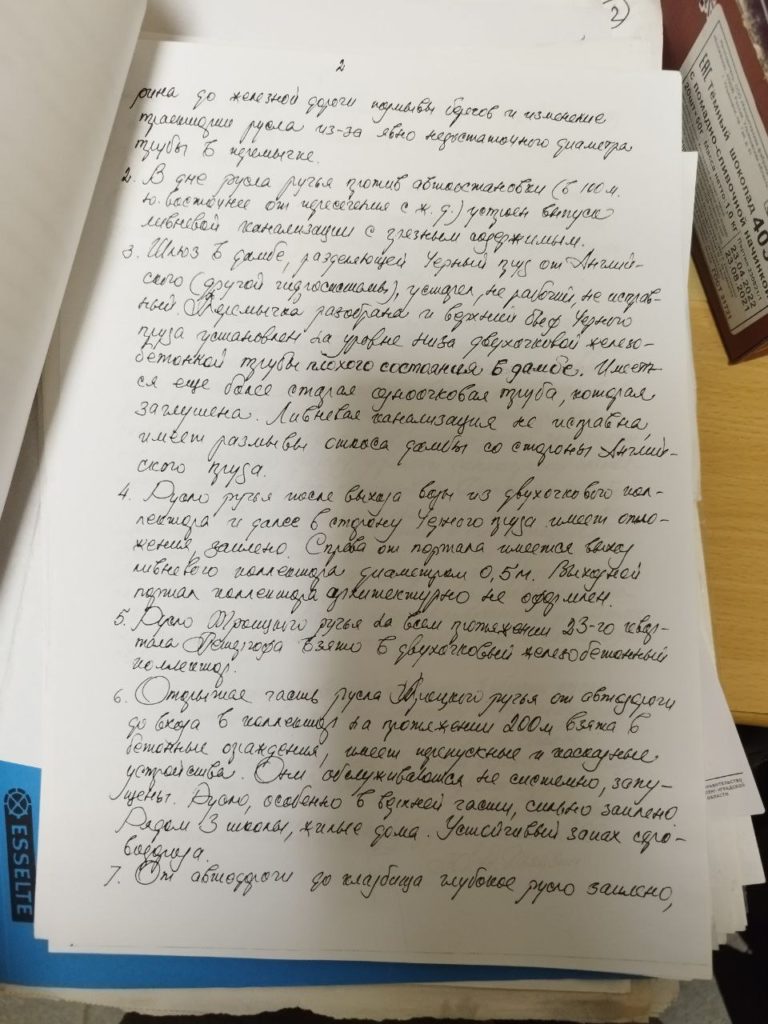 2
2
рина до железной дороги размывы берегов и изменение
траектории русла из-за явно недостаточного диаметра
трубы в перемычке.
2. В дне русла ручья против автоостановки (в 100 м.
ю. восточнее от пересечения с ж. д.) устроен выпуск
ливневой канализации с грязным содержимым.
3. Шлюз в дамбе, разделяющей Черный пруд от Англий-
ского (другой гидросистемы), устарел, не рабочий, не исправ-
ный. Перемычка разобрана и верхний бьеф Черного
пруда установлен на уровне низа двухочковой железо-
бетонной трубы плохого состояния в дамбе. Имеет-
ся еще более старая одноочковая труба, которая
заглушена. Ливневая канализация не исправна,
имеет размывы откоса дамбы со стороны Англий-
ского пруда.
4. Русло ручья после выхода воды из двухочкового кол-
лектора и далее в сторону Черного пруда имеет отло-
жения, заилено. Справа от портала имеется выход
ливневого коллектора диаметром 0,5 м. Выходной
портал коллектора архитектурно не оформлен.
5. Русло Троицкого ручья на всем протяжении 23-го квар-
тала Петергофа взято в двухочковый железобетонный
коллектор.
6. Открытая часть русла Троицкого ручья от автодороги
до входа в коллектор на протяжении 200 м взята в
бетонные ограждения, имеет перепускные и каскадные
устройства. Они обслуживаются не системно, запу-
щены. Русло, особенно в верхней части, сильно заилено
Рядом 3 школы, жилые дома. Устойчивый запах серо-
водорода.
7. От автодороги до кладбища глубокое русло заилено,
ESSELTE
ЕАС ТЁМНЫЙ ШОКОЛАД
С ПОМАДНО-СЛИВОЧНОЙ НАЧИНКОЙ
23.02.2022
23.08.2021